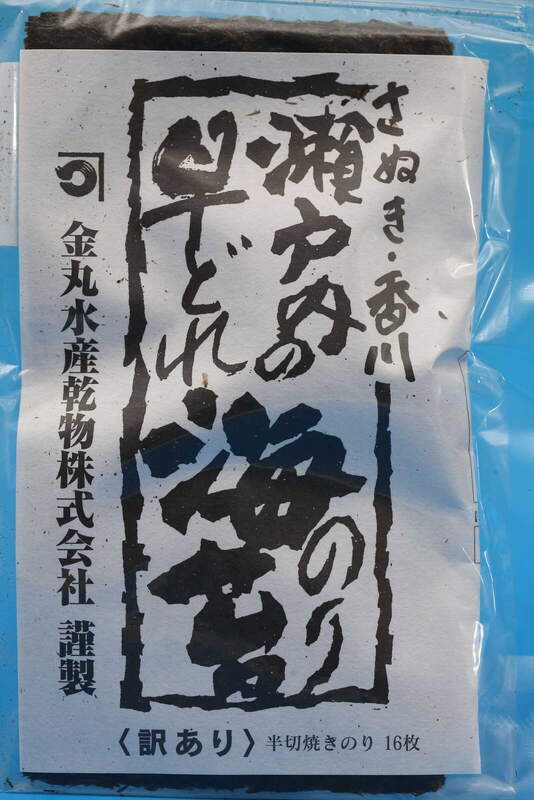 さぬき・香川
瀬戸内の
早どれ
海苔
のり
金丸水産乾物株式会社 謹製
〈訳あり〉半切焼きのり 16枚